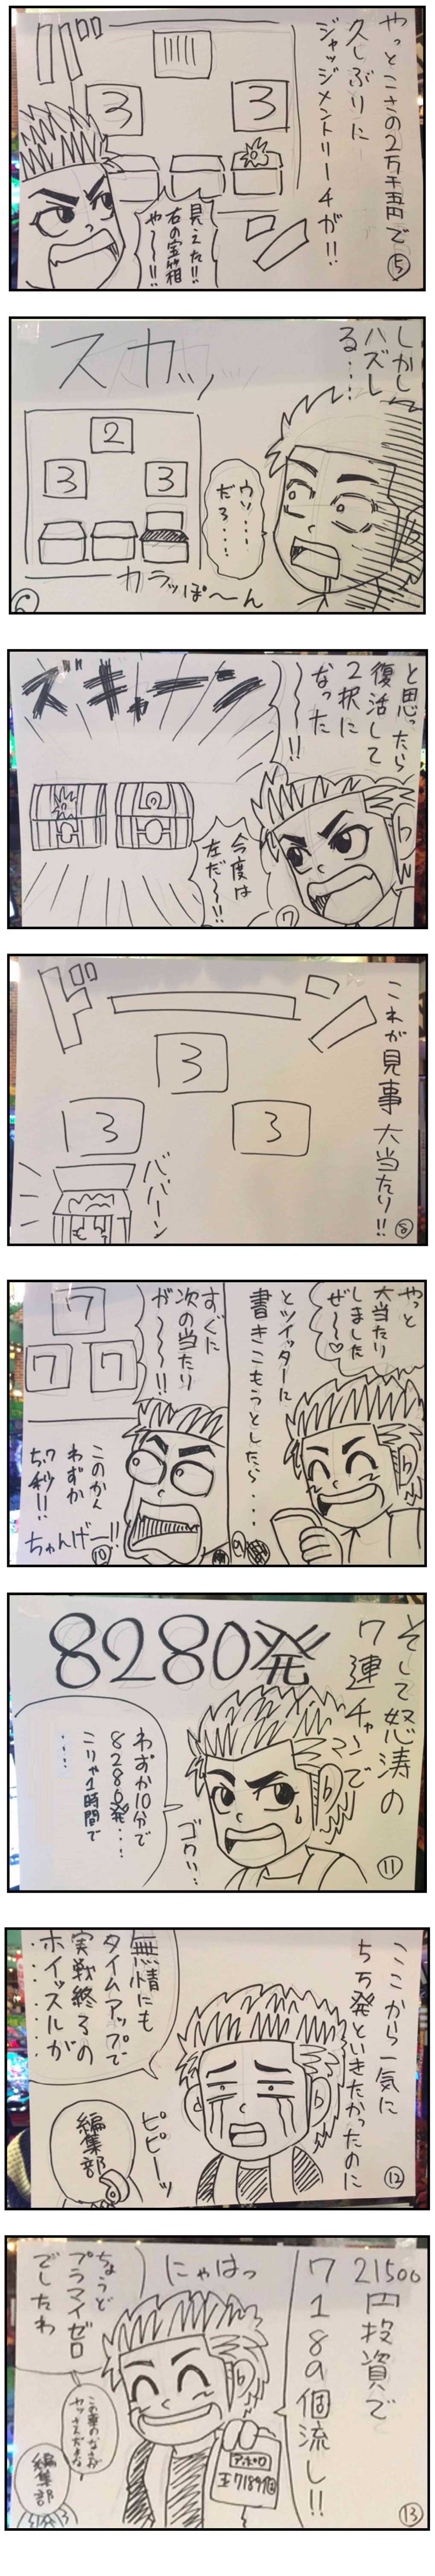 やっとこさの2万千円で
久しぶりに
ジャッジメントリーチが!!
3
3
見えた!!
右の宝箱
や〜〜!!
⑤
しかし
ハズレ
る……
スカッ
2
3
3
ウソ……
だろ……
カラッぽ〜ん
6
と思ったら
復活して
2択に
なった
〜〜!!
ズキャーーン
今度は
左だ〜!!
⑦
これが見事大当たり!!
ドーン
3
3
3
ババーン
⑧
やっと
大当たり
しました
ぜ〜〜♡
とツイッターに
書きこもうとしたら・・・
⑨
すぐに
次の当たり
が〜〜!!
7
7
7
このかん
わずか
7秒!!
ちゃんげー!!
⑩
そして怒涛の
7連チャンで
8280発
ゴクッ…
わずか10分で
8280発…
こりゃ1時間で
……
⑪
ここから一気に
5万発といきたかったのに
無情にも
タイムアップで
実戦終了の
ホイッスルが
ピピーッ
編集部
⑫
21500円投資で
7189個流し!!
にゃはっ
ちょうど
プラマイゼロ
でしたわ
アポロ
玉7189個
編集部
⑬